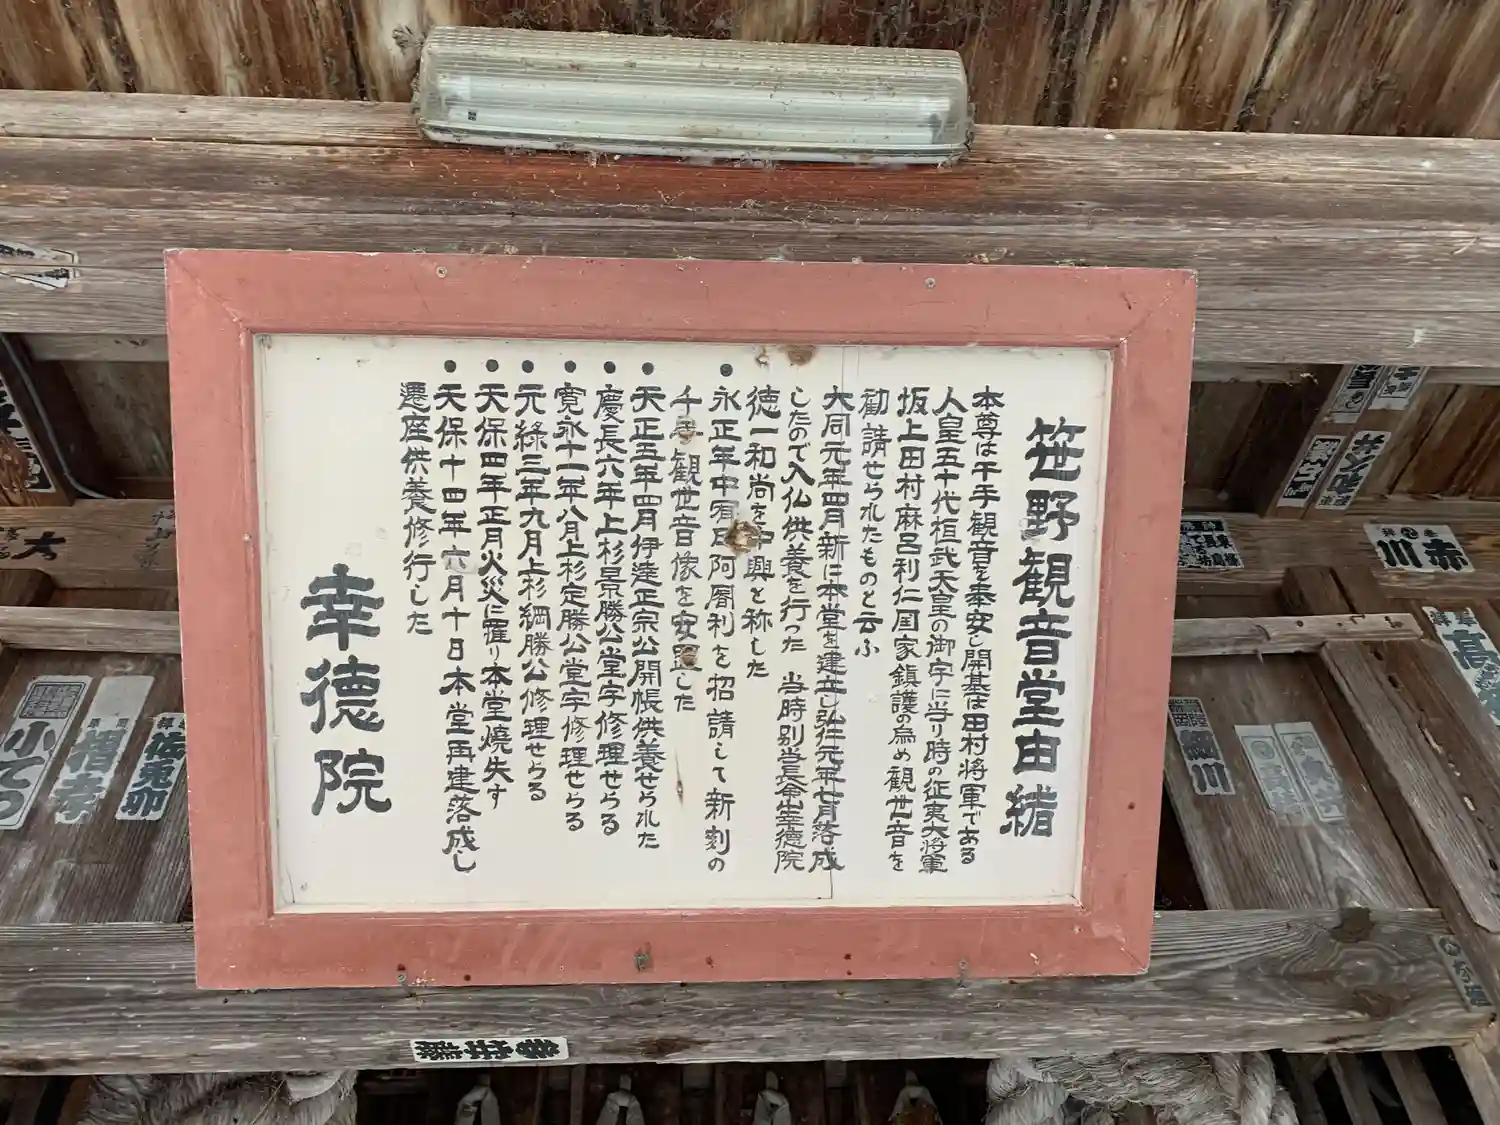 笹野観音堂由緒
本尊は千手観音を奉安し開基は田村将軍である
人皇五十代桓武天皇の御宇に当り時の征夷大将軍
坂上田村麻呂利仁国家鎮護の為め観世音を
勧請せられたものと云ふ
大同元年四月新に本堂を建立し弘仁元年七月落成
したので入仏供養を行った 当時別当長命山幸徳院
徳一和尚を中興と称した
・永正年中宥日阿闍利を招請して新刻の
千手観世音像を安置した
・天正五年四月伊達正宗公開帳供養せられた
・慶長六年上杉景勝公堂宇修理せらる
・寛永十一年八月上杉定勝公堂宇修理せらる
・元祿三年九月上杉綱勝公修理せらる
・天保四年正月火災に罹り本堂燒失す
・天保十四年六月十日本堂再建落成し
遷座供養修行した
幸德院
赤川
細川
小てつ
佐兎卯